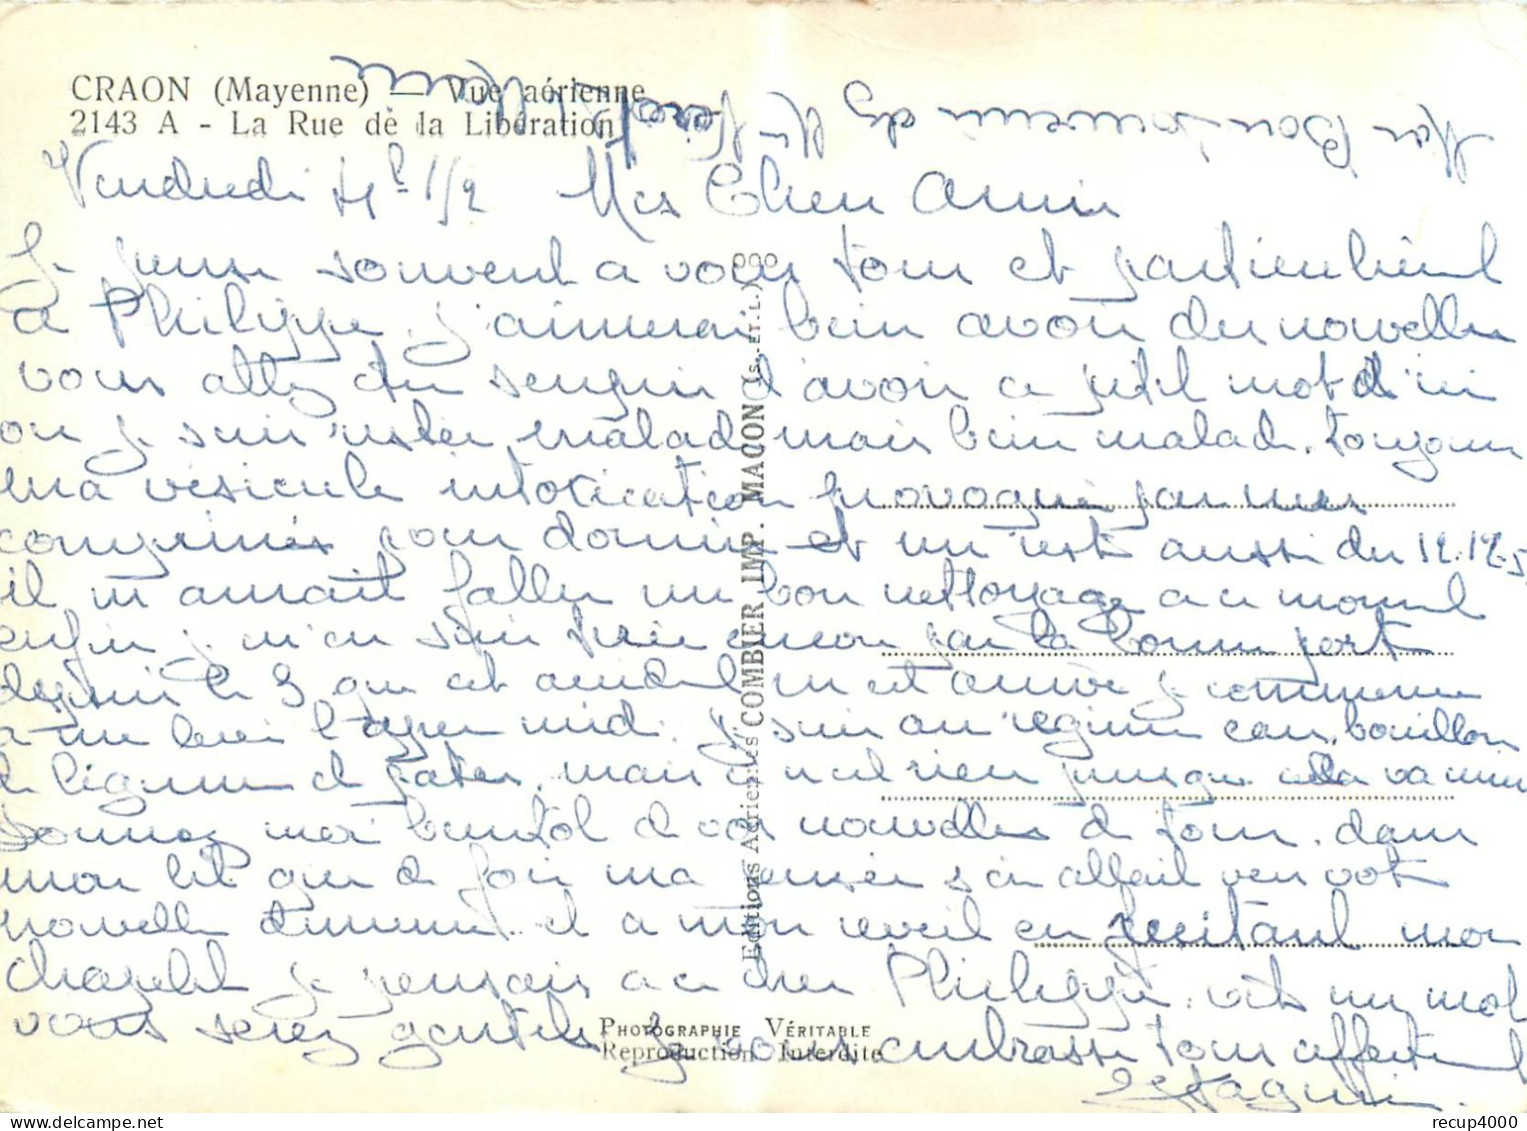 CRAON (Mayenne) — Vue aérienne
2143 A - La Rue de la Libération
Mon Bon souvenir
Vendredi 4h 1/2 Mes Chers Amis
Je pense souvent a vous tous et particulièrement
a Philippe, j'aimerai bien avoir des nouvelles
vous allez d'avoir ce petit mot d'ici
ou je suis rester malade mais bien malade. toujours
ma vésicule intoxication provoquée par mes
comprimés pour dormir et un reste aussi du 12.12.5
il m'aurait fallu un bon nettoyage a ce moment
enfin j'm'en suis par la bonne porte
depuis le 3 que cet accident m'est arrivé je commence
a me lever l'apres midi. je suis au régime eau, bouillon
de légumes et pates, mais ce n'est rien puisque cela va mieux
Donnez moi bientot de vos nouvelles de tous. dans
mon lit que de fois ma pensée s'en allait vers vot
nouvelle et a mon réveil en récitant mon
chapelet je pensais a ce cher Philippe. vite un mot
vous serez gentils je vous embrasse tous affectueusement
Editions Aériennes COMBIER IMP. MACON (S.-ET-L.)
PHOTOGRAPHIE VÉRITABLE
Reproduction Interdite
recup4000